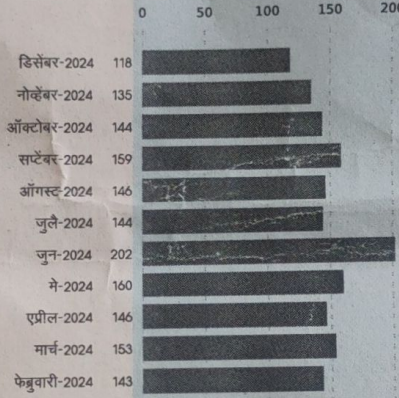 0 50 100 150 200
डिसेंबर-2024 118
नोव्हेंबर-2024 135
ऑक्टोबर-2024 144
सप्टेंबर-2024 159
ऑगस्ट-2024 146
जुलै-2024 144
जुन-2024 202
मे-2024 160
एप्रील-2024 146
मार्च-2024 153
फेब्रुवारी-2024 143